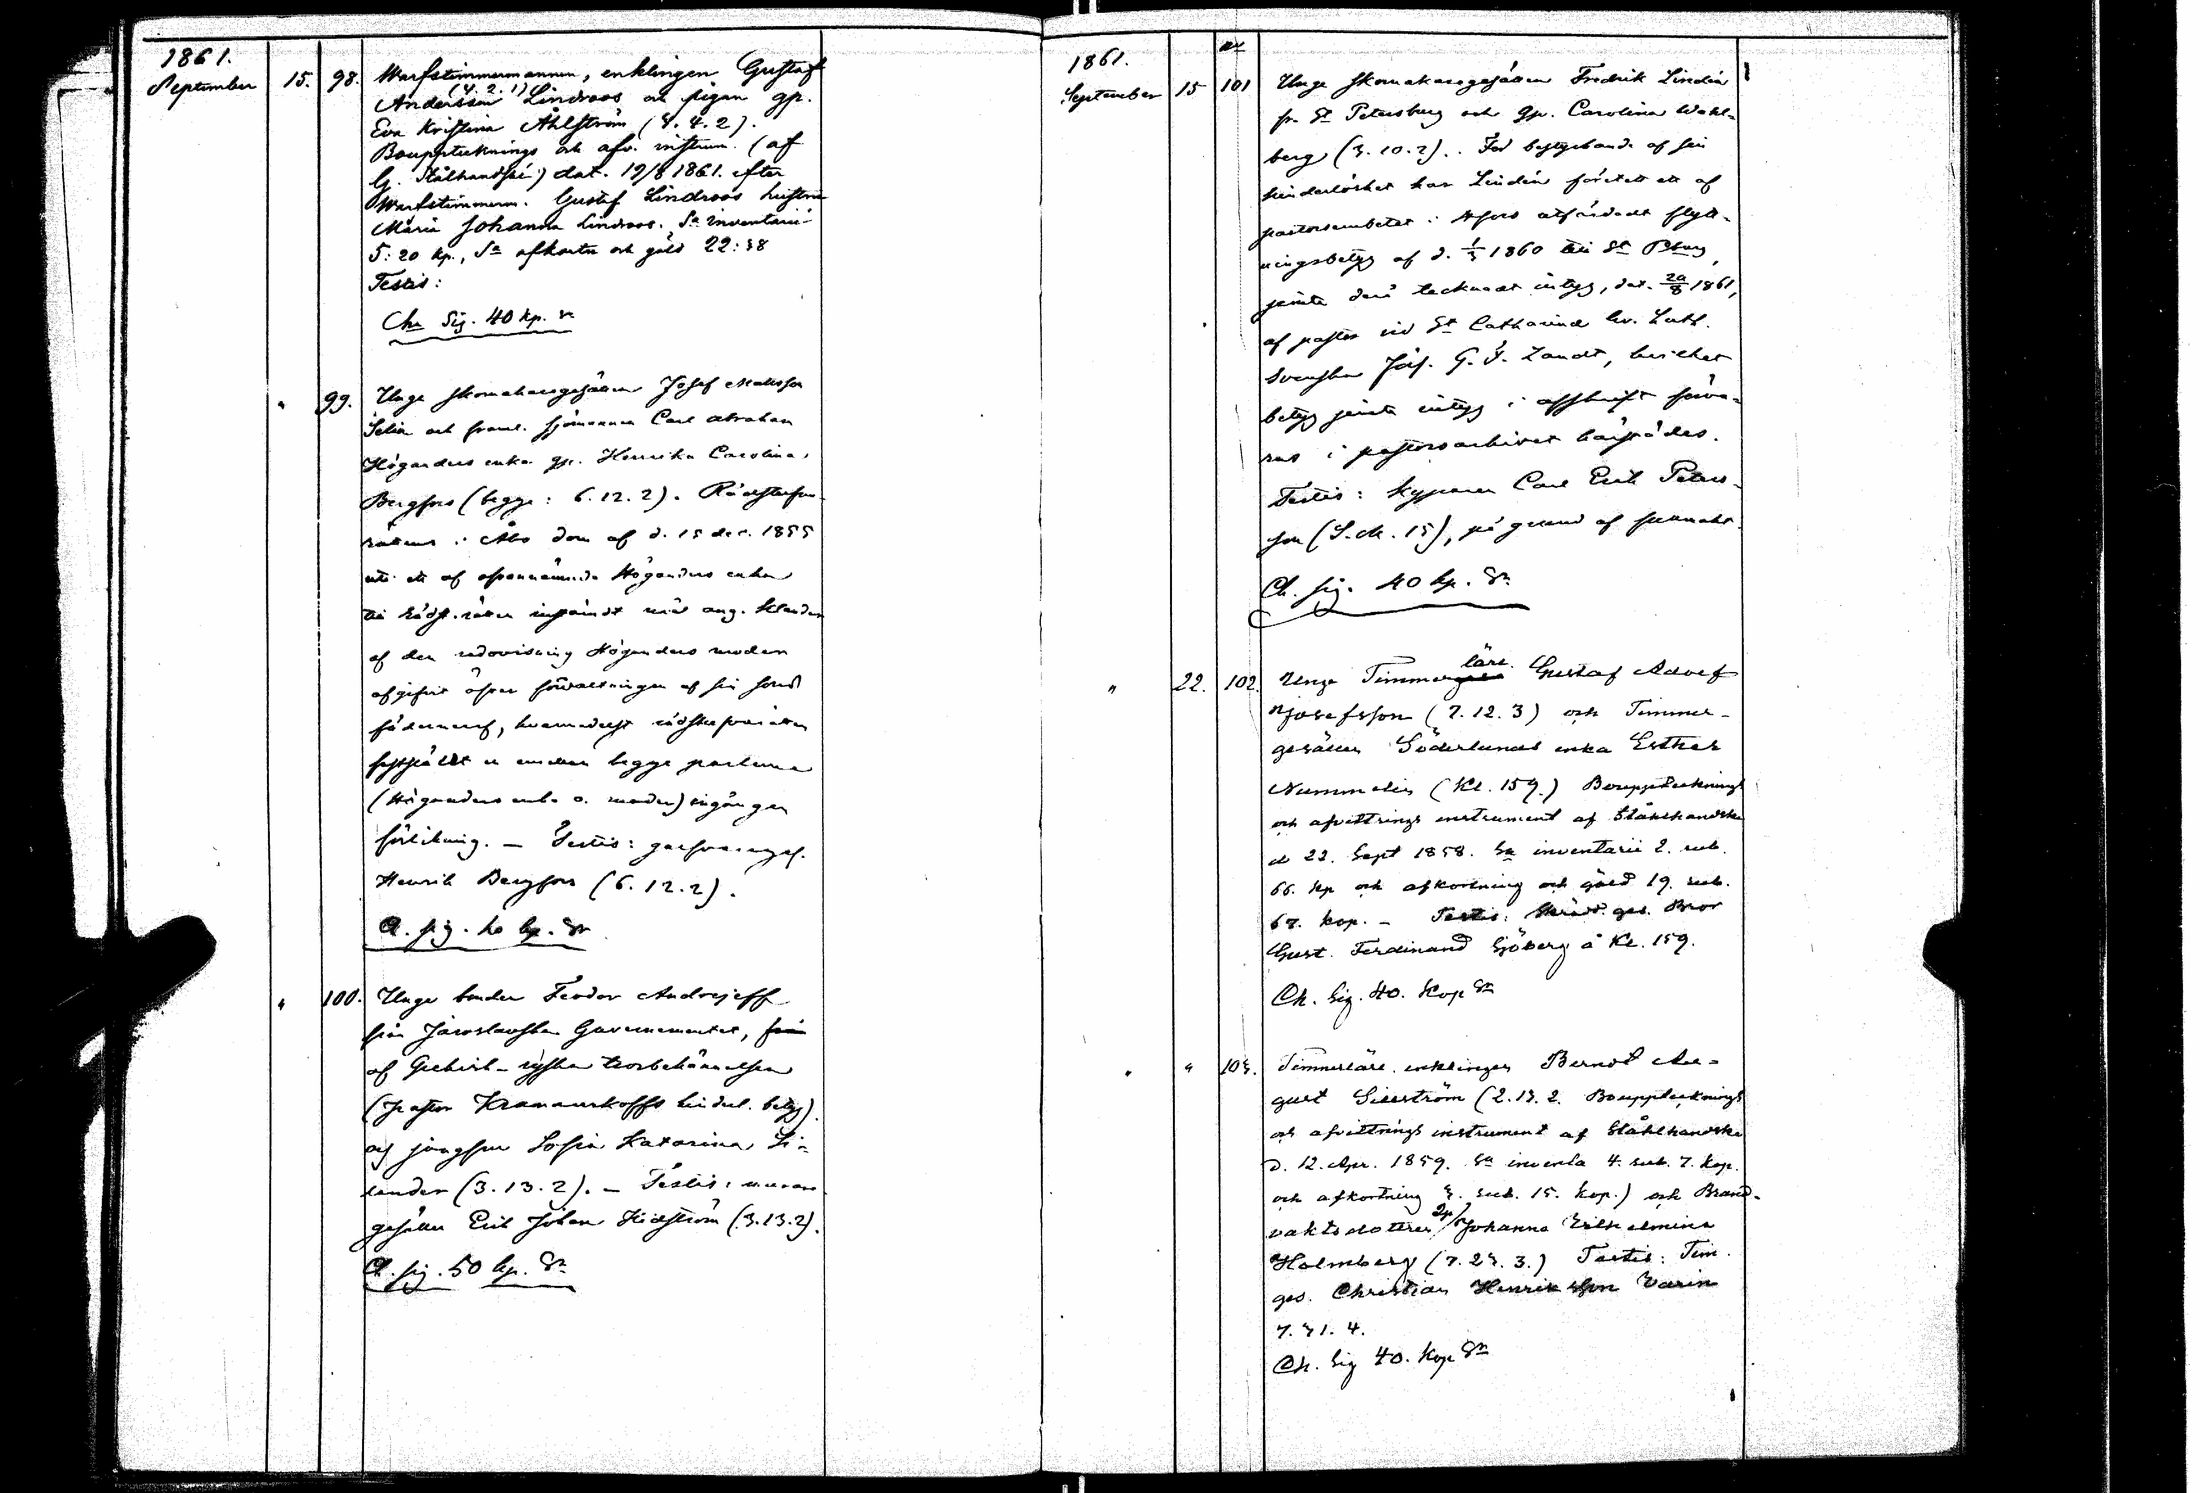 1861.
September 15. 98. Warfstimmermannen, enklingen Gustaf
(4. 2. 1)
Andersson Lindroos och pigan gp.
Eva Kristina Åhlström (8. 4. 2).
Bouppteknings och afv. instrum. (af
G. Stålhandske) dat. 19/8 1861. efter
Warfstimmerm. Gustaf Lindroos hustru
Maria Johanna Lindroos. Sa inventarii
5: 20 kp., Sa afkortn och gäld 22: 38
Testis:
Ch. Sig. 40 kp. Sr
" 99. Unge skomakaregesällen Josef Mattsson
Selin och framl. sjömannen Carl Abraham
Höganders enka gp. Henrika Carolina
Bergfors (begge: 6. 12. 2). Rådstufvu
rättens i Åbo dom af d. 15 dec. 1855
uti ett af ofvannämnde Höganders enka
till rådst. rätten instämdt mål ang. klander
af den redovisning Höganders moder
afgifvit öfver förvaltningen af sin sons
fädernearf, hvarmedelst rådstufvurätten
fastställt en emellan begge parterna
(Höganders enka o. moder) ingången
förlikning. — Testis: garfvaregес.
Henrik Bergfors (6. 12. 2).
Ch. sig. 40 kp. Sr
" 100. Unge bonden Feodor Andrejeff
från Jaroslavska Guvernementet,
af Grekisk-ryska trosbekännelsen
(pastor hinderl. betyg).
och jungfru Sofia Katarina Se-
lander (3. 13. 2). — Testis: murare
gesällen Erik Johan Hedström (3. 13. 2).
Ch. sig. 50 kp. Sr
1861.
September 15 101 Unge skomakaregesällen Fredrik Lindén
fr. St Petersburg och gp. Carolina Wahl-
berg (3. 10. 2). För bestyrkande af sin
hinderlöshet har Lindén företett ett af
pastorsembetet i Hfors utfärdadt flytt-
ningsbetyg af d. 1860 till St Pburg,
jemte derå tecknadt intyg, dat. 29/8 1861,
af pastor vid St Catharina Ev. Luth.
Svenska förs. G. F. Zandt, hvilket
betyg jemte intyg i afskrift förva-
ras i pastorsarkivet härstädes.
Testis: kyparen Carl Erik Peters-
son (S. M. 15), på grund af
Ch. sig. 40 kp. Sr
" 22. 102. Unge Timmerlärl. Gustaf Adolf
Josefsson (7. 12. 3) och Timmer-
gesällen Söderlunds enka Esther
Nummelin (Kl. 159.) Bouppteknings
och afvittrings instrument af Stålhandske
d 22. Sept 1858. Sa inventarii 2. rub.
66. kp och afkortning och gäld 19. rub.
68. kop. — Testis: Skrädd. ges. Bror
Gust. Ferdinand Sjöberg å Kl. 159.
Ch. Sig. 40. Kop Sr
" " 103. Timmerlärl. enklingen Berndt Au-
gust Silfström (2. 13. 2. Bouppteknings
och afvittrings instrument af Stålhandske
d. 12. Apr. 1859. Sa inventa 4. rub. 7. kop.
och afkortning 3. rub. 15. kop.) och Brand-
vaktsdottren gp/ Johanna Vilhelmina
Holmberg (7. 23. 3.) Testis: Tim.
ges. Christian Henriksson Varin
7. 31. 4.
Ch. Sig 40. Kop Sr